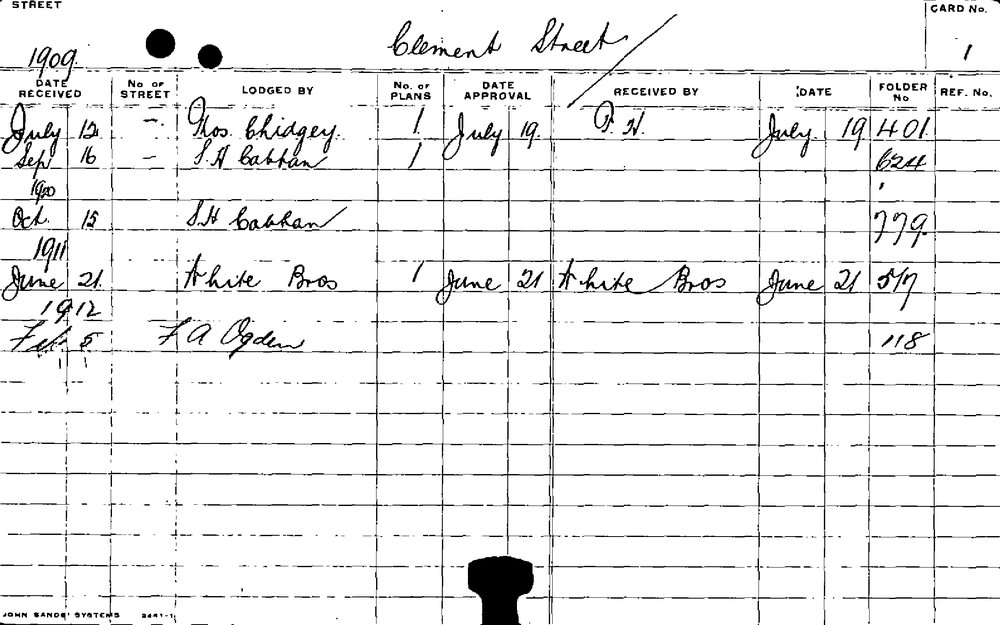 STREET
Clement Street
CARD No.
1
1909.
DATE RECEIVED No OF STREET LODGED BY No. OF PLANS DATE APPROVAL RECEIVED BY DATE FOLDER No REF. No.
July 12 – Thos. Chidgey. 1 July 19. July. 19 401
Sep 16 – S.H 1 624
Oct. 15 S.H 779
1911
June 21. White Bros 1 June 21 White Bros June 21 517
1912
Feb 5 F A Ogden 118
JOHN SANDS' SYSTEMS